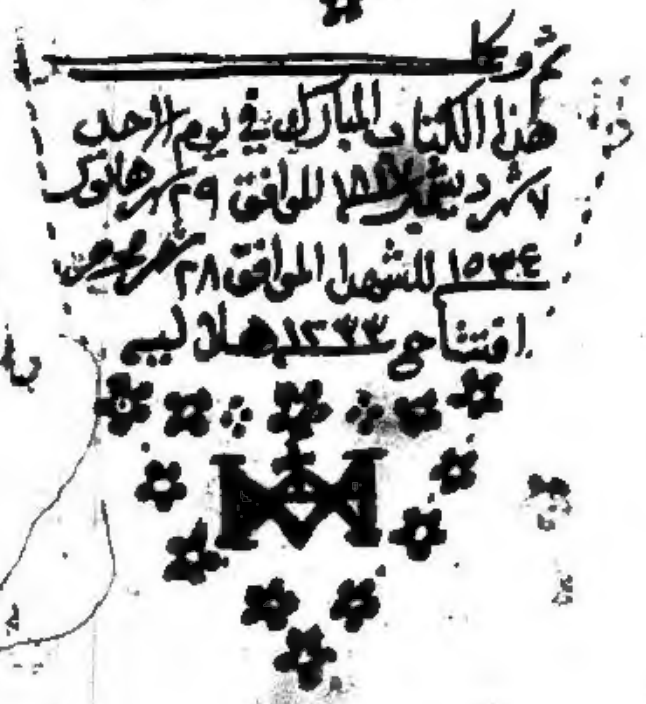 تم
هذا الكتاب المبارك في يوم الاحد
٧ شهر الموافق ٢٩ شهر هاتور
١٥٣٤ للشهدا الموافق ٢٨ شهر
افتتاح ١٢٣٣ هلاليه